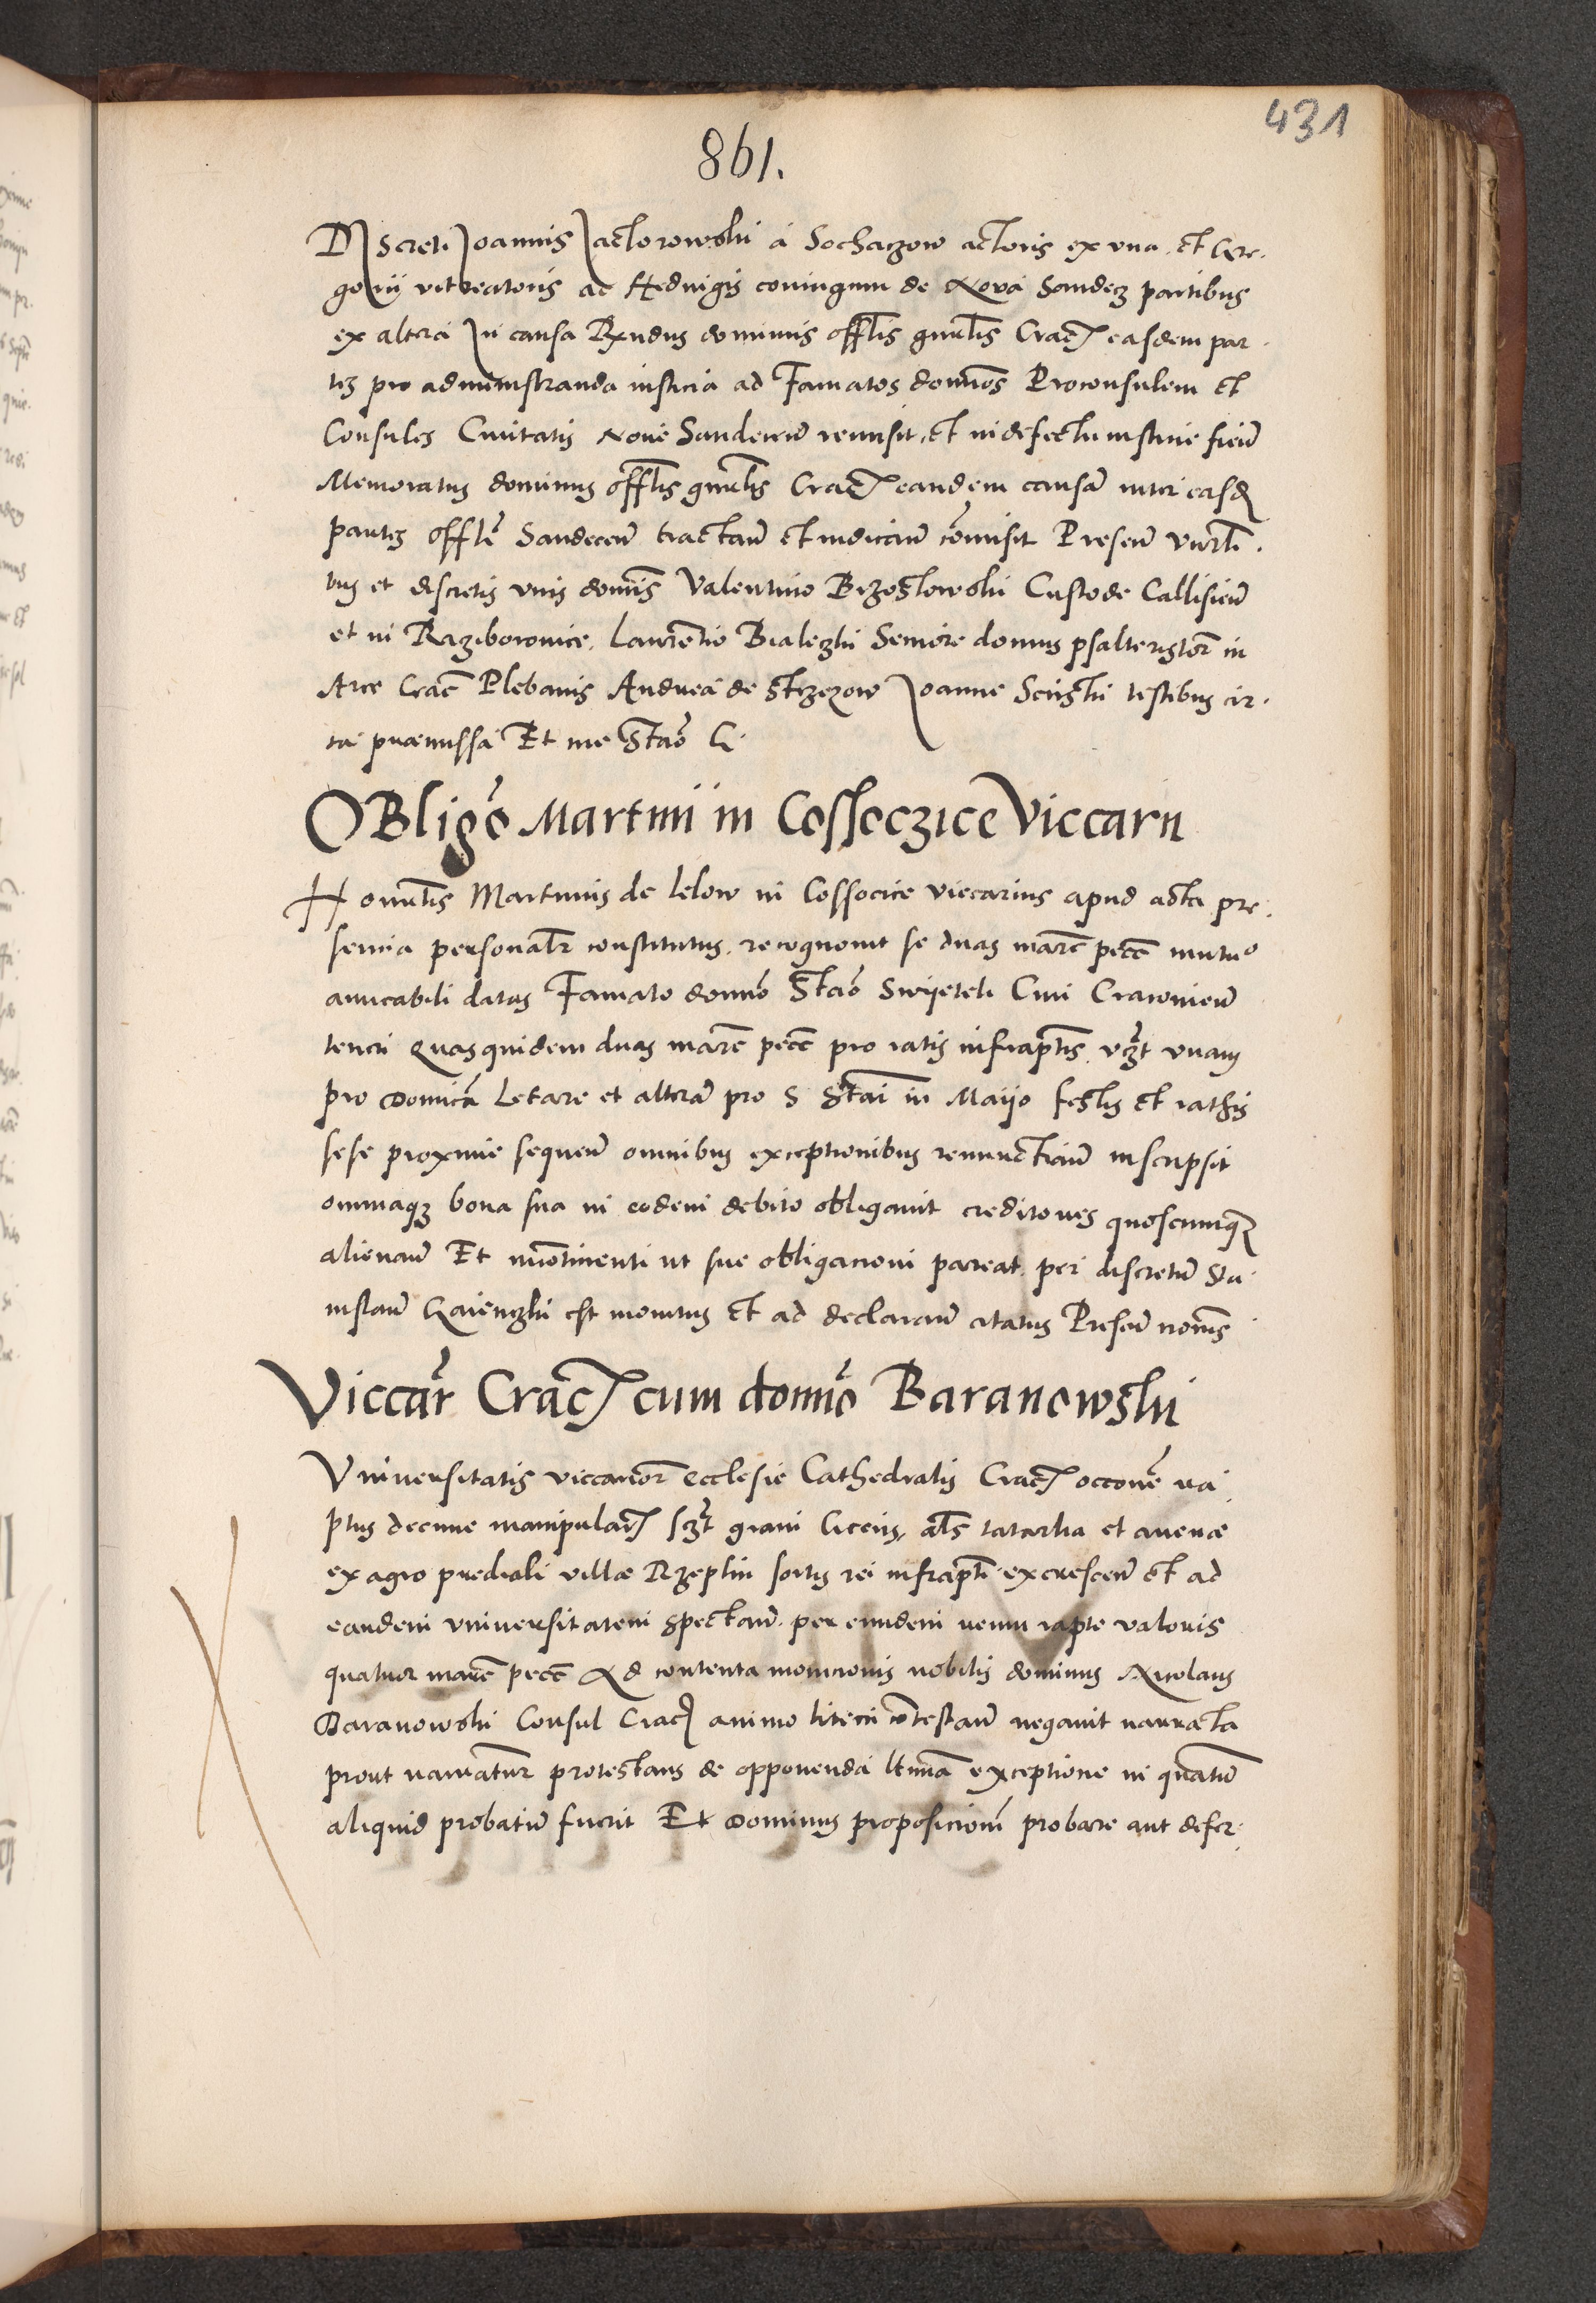 431
861.
Discreti Joannis Jactorowski a Sochaczow actoris ex vna, et Gre-
gorii vitreatoris ac Hedvigis coniugum de Nova Sandecz partibus
ex altera In causa Rxndus dominus offlis gnulis Crac easdem par-
tes pro administranda iusticia ad Famatos domios Proconsulem et
Consules Civitatis Nove Sandecien remisit, et in defectu iusticie fien
Memoratus dominus offlis gnulis Crac eandem causam inter easd
partes offli Sandecen tractan et iudican comisit Presen
tus et discretis viris domis Valentino Brzostowski Custode Callisien
et in Raziborowice, Laurentio Bialeczki Seniore domus psalteristor in
Arce Crac Plebanis Andrea de Strzezow Joanne testibus cir-
ca praemissa Et me Stao G
OBligo Martini in Cossoczice Viccarii
Honulis Martinus de Lelow in Cossocice viccarius apud acta pre-
sencia personalr constitutus, recognovit se duas marc pecc mutuo
amicabili datas Famato domio Stao Swyeteli Civi Cracovien
teneri Quasquidem duas marc pecc pro ratis infraptis, vczt vnam
pro Domica Letare et alteram pro S Stai in Maijo festis et rathis
sese proxime sequen omnibus exceptionibus renunctian inscripsit
omniaqz bona sua in eodem debito obligavit creditores quoscumqz
alienan Et incontinenti ut sue obligacioni pareat, per discretum Sta-
nislaum est monitus et ad declaran citatus Presen nomis
Viccar Crac cum domo Baranowski
Vniversitatis viccarior Ecclesie Cathedralis Crac occone ra-
ptus decime manipular sczt grani als tatarka et avenae
ex agro prediali villae Rzeplin sortis rei infrapti excrescen et ad
eandem vniversitatem spectan per eundem reum rapte valoris
quatuor marc pecc Ad contenta monicionis nobilis dominus Nicolaus
Baranowski Consul Crac animo litem contestan negavit narrata
prout narratur protestans de opponenda ltima exceptione in quatum
aliquid probatum fuerit Et Dominus proposicioni probare aut defer-